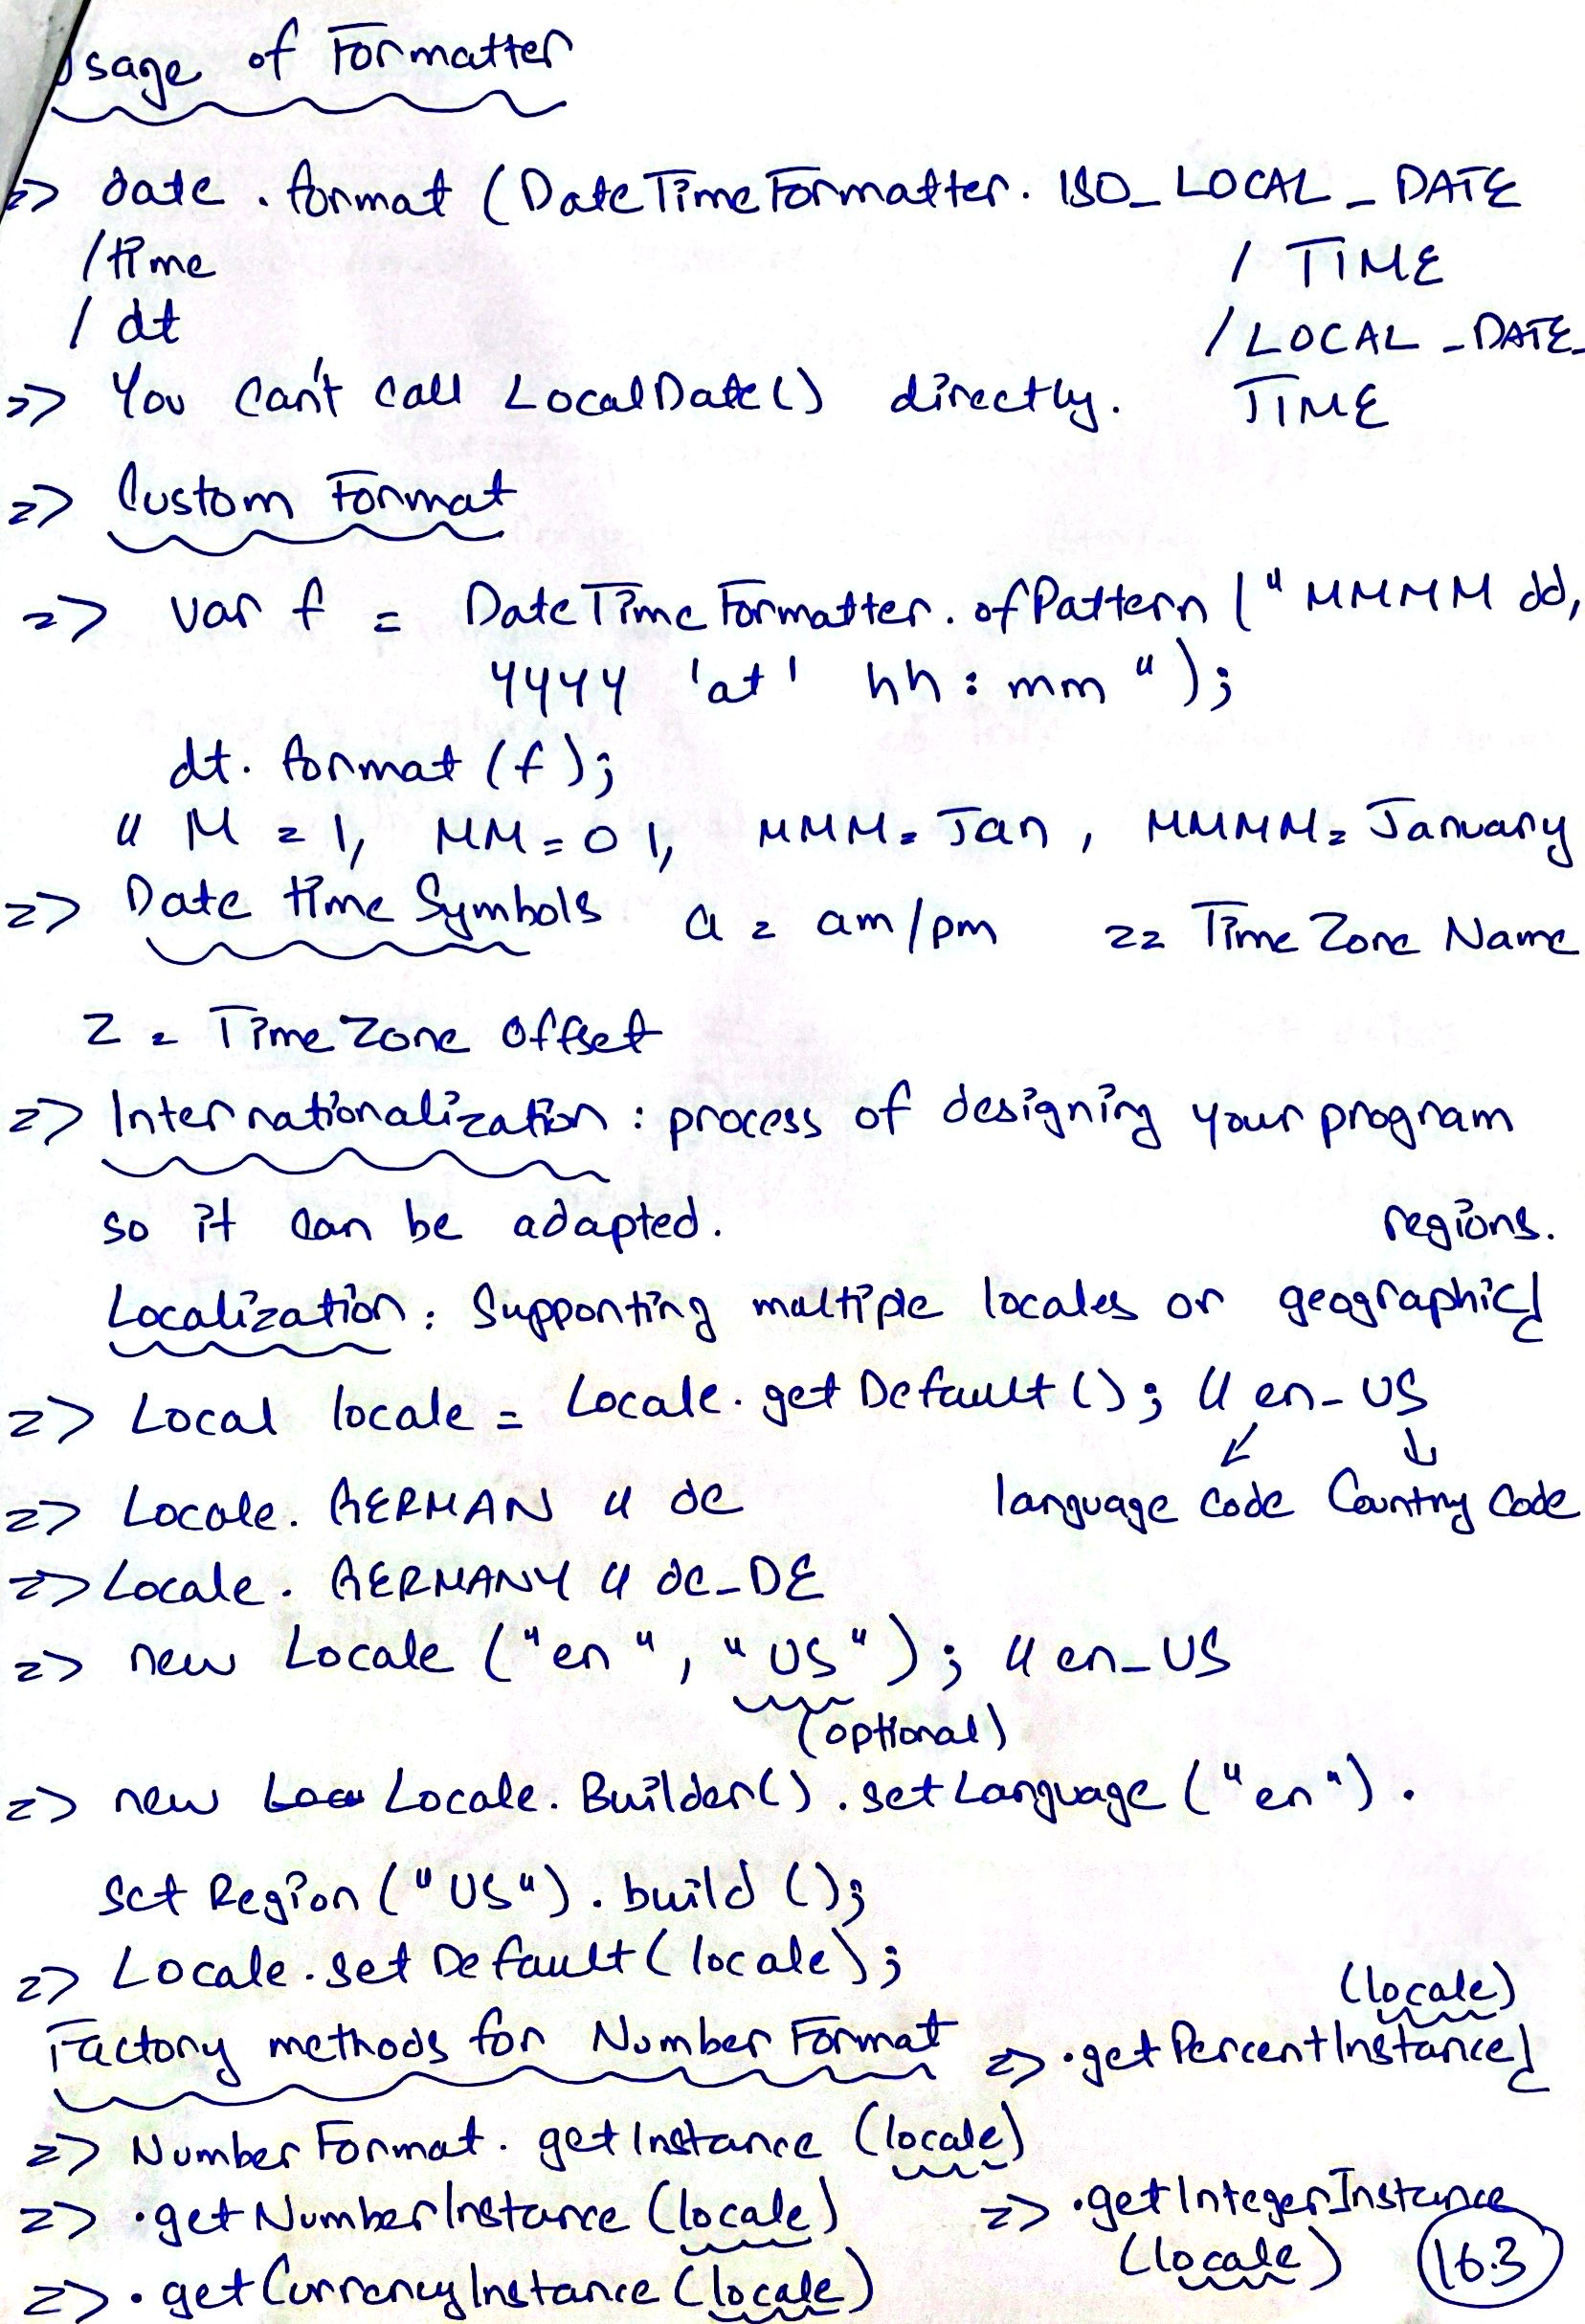 Usage of Formatter
=> date . format (DateTimeFormatter. ISO_LOCAL_DATE
/time / TIME
/ dt / LOCAL_DATE_
=> You can't call LocalDate() directly. TIME
=> Custom Format
=> var f = DateTimeFormatter. ofPattern ("MMMM dd,
yyyy 'at' hh:mm");
dt. format (f);
// M = 1, MM = 01, MMM = Jan, MMMM = January
=> Date time Symbols a = am/pm z = Time Zone Name
Z = Time Zone Offset
=> Internationalization : process of designing your program
so it can be adapted. regions.
Localization : Supporting multiple locales or geographic
=> Local locale = Locale. getDefault(); // en-US
=> Locale. GERMAN // de language code Country Code
=> Locale. GERMANY // de_DE
=> new Locale ("en", "US"); // en_US
(optional)
=> new Locale. Builder() . setLanguage ("en") .
setRegion ("US") . build ();
=> Locale.setDefault(locale);
(locale)
Factory methods for Number Format => .getPercentInstance
=> NumberFormat. getInstance (locale)
=> .getNumberInstance (locale) => .getIntegerInstance
(locale) 16.3
=> .getCurrencyInstance (locale)